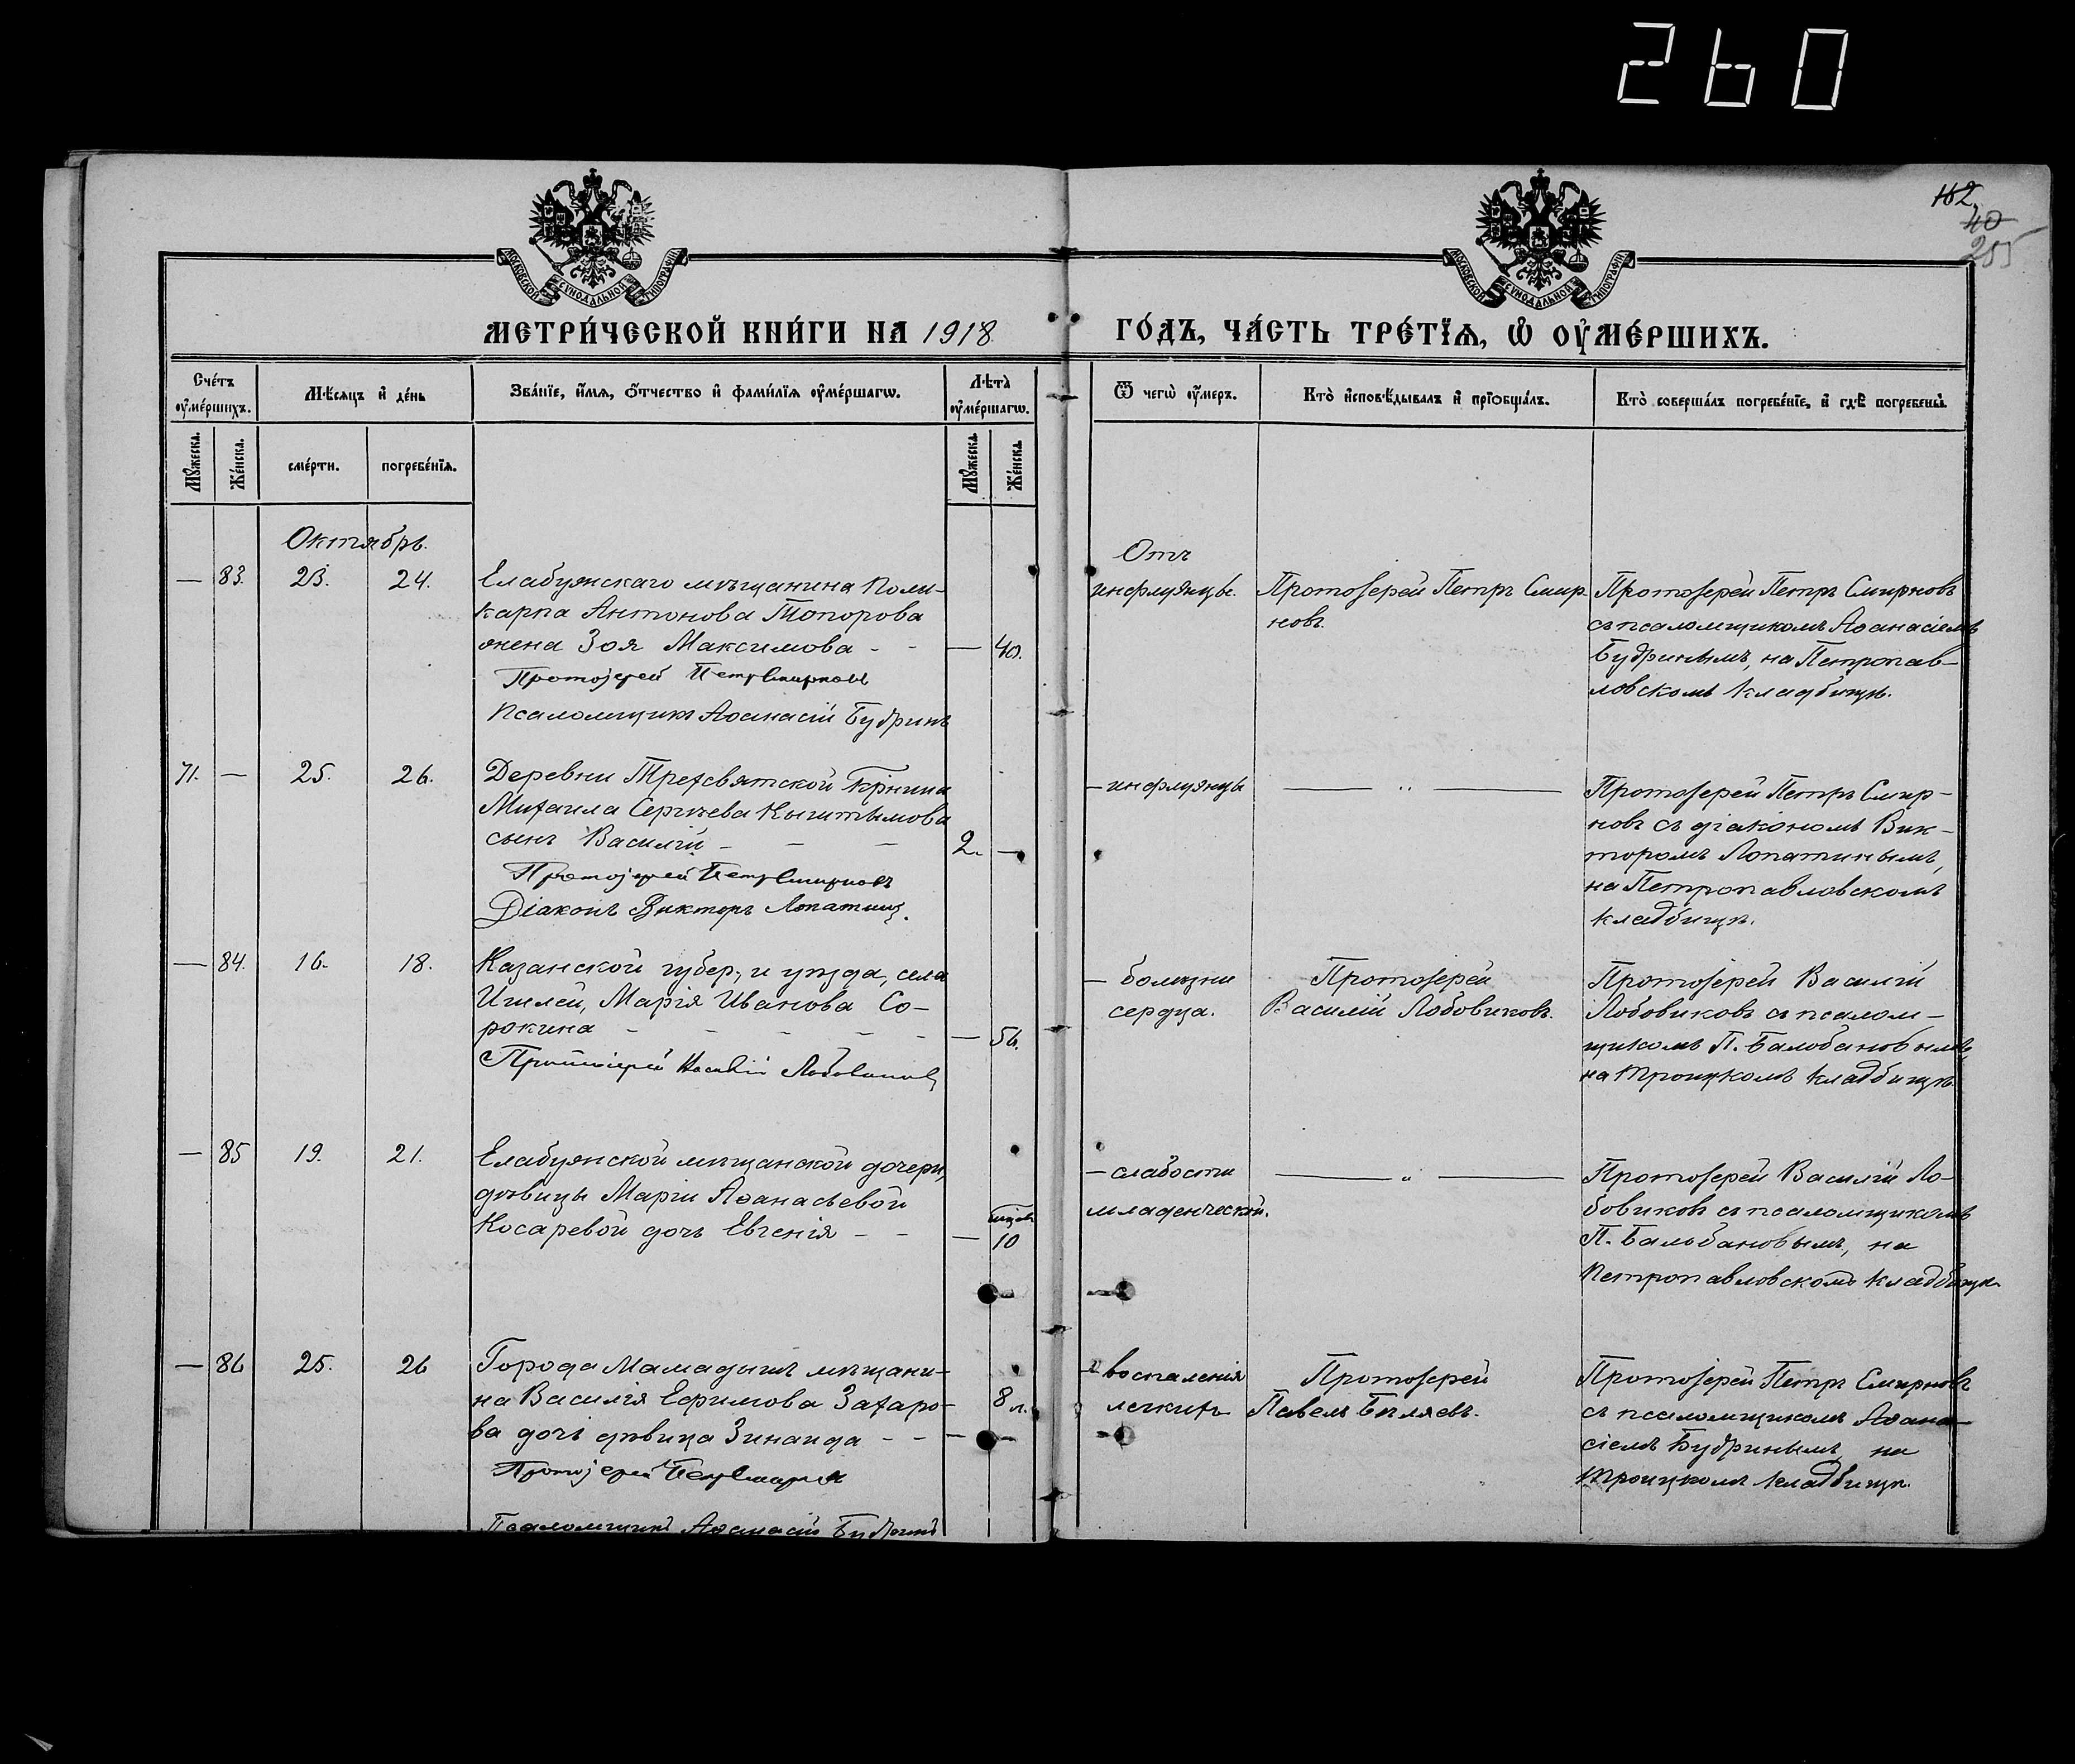 260
162
40
255
МОСКОВСКОЙ СѴНОДАЛЬНОЙ ТИПОГРАФІИ
МОСКОВСКОЙ СѴНОДАЛЬНОЙ ТИПОГРАФІИ
МЕТРИ́ЧЕСКОЙ КНИ́ГИ НА 1918 ГО́ДЪ, ЧА́СТЬ ТРЕ́ТЇѦ, Ѡ҆ ОУ҆МЕ́РШИХЪ.
Сче́тъ оу҆ме́ршихъ.
Мѣ́сяцъ и҆ де́нь
Зва́нїе, и҆́мѧ, ѻ҆́тчество и҆ фами́лїѧ оу҆ме́ршагѡ.
Лѣ́та оу҆ме́ршагѡ.
Ѿ чегѡ̀ оу҆́меръ.
Кто̀ и҆сповѣ́дывалъ и҆ прїѻбща́лъ.
Кто̀ соверша́лъ погребе́нїе, и҆ гдѣ̀ погребены̀.
Мꙋ́жеска.
Же́нска.
сме́рти.
погребе́нїѧ.
Мꙋ́жеска.
Же́нска.
Октябрь.
— 83. 23. 24.
Елабужскаго мѣщанина Поли-
карпа Антонова Топорова
жена Зоя Максимова - -
— 40.
Протоіерей Петръ Смирновъ
Псаломщикъ Аѳанасій Будринъ
Отъ
инфлуэнцы.
Протоіерей Петръ Смир-
новъ.
Протоіерей Петръ Смирновъ
съ псаломщикомъ Аѳанасіемъ
Будринымъ, на Петропав-
ловскомъ кладбищѣ.
71. — 25. 26.
Деревни Трехсвятской
Михаила Сергѣева Кыштымова
сынъ Василій - - -
2. —
Протоіерей Петръ Смирновъ
Діаконъ Викторъ Лопатинъ.
— инфлуэнцы
— „ —
Протоіерей Петръ Смир-
новъ съ діакономъ Вик-
торомъ Лопатинымъ,
на Петропавловскомъ
кладбищѣ.
— 84. 16. 18.
Казанской губер., и уѣзда, села
Марія Иванова Со-
рокина - - - - -
— 56.
Протоіерей Василій Лобовиковъ
— болѣзни
сердца.
Протоіерей
Василій Лобовиковъ.
Протоіерей Василій
Лобовиковъ съ псалом-
щикомъ П. Балобановымъ,
на Троицкомъ кладбищѣ.
— 85 19. 21.
Елабужской мѣщанской дочери,
дѣвицы Маріи Аѳанасьевой
Косаревой дочь Евгенія - -
— 10
— слабости
младенческой.
— „ —
Протоіерей Василій Ло-
бовиковъ съ псаломщикомъ
П. Балобановымъ, на
Петропавловскомъ кладбищѣ
— 86 25. 26
Города Мамадышъ мѣщани-
на Василія Ефимова Захаро-
ва дочь дѣвица Зинаида - -
— 8 л.
Протоіерей Петръ Смирновъ
Псаломщикъ Аѳанасій Будринъ
— воспаленія
легкихъ
Протоіерей
Павелъ Бѣляевъ.
Протоіерей Петръ Смирновъ
съ псаломщикомъ Аѳана-
сіемъ Будринымъ, на
Троицкомъ кладбищѣ.